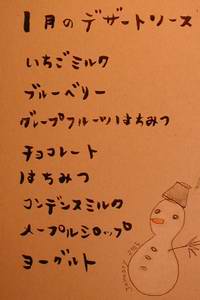 1月のデザートソース
いちごミルク
ブルーベリー
グレープフルーツはちみつ
チョコレート
はちみつ
コンデンスミルク
メープルシロップ
ヨーグルト